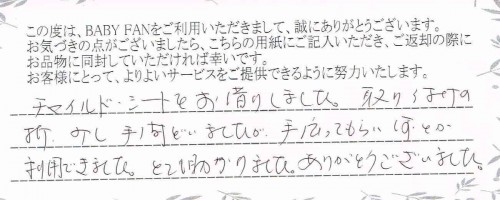 この度は、BABY FANをご利用いただきまして、誠にありがとうございます。
お気づきの点がございましたら、こちらの用紙にご記入いただき、ご返却の際に
お品物に同封していただければ幸いです。
お客様にとって、よりよいサービスをご提供できるように努力いたします。
チャイルド・シートをお借りしました。取りはずしの
折、少し手間どいましたが、手伝ってもらい何とか
利用できました。とても助かりました。ありがとうございました。